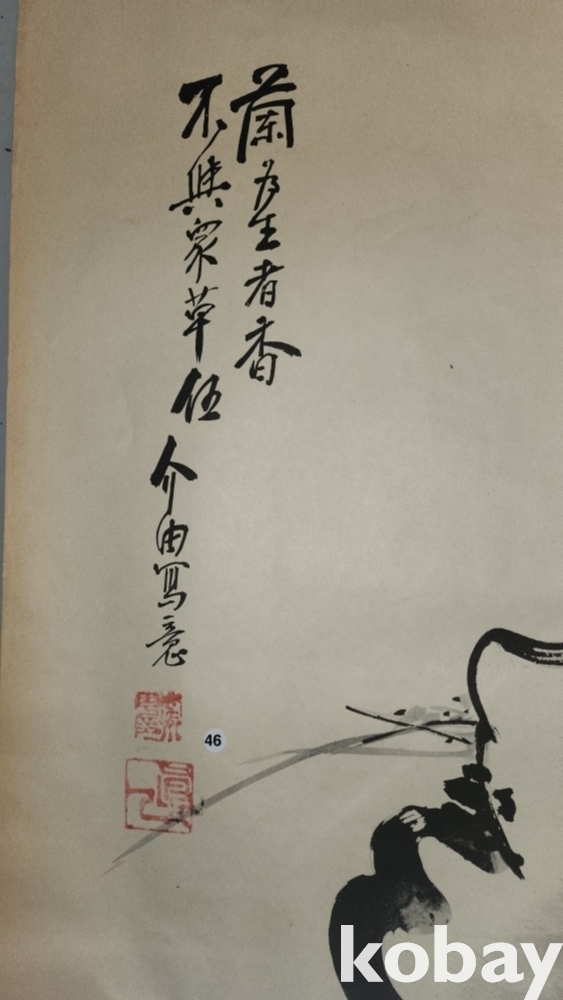 蘭為王者香
不與衆草伍 介由寫意
46
kobay